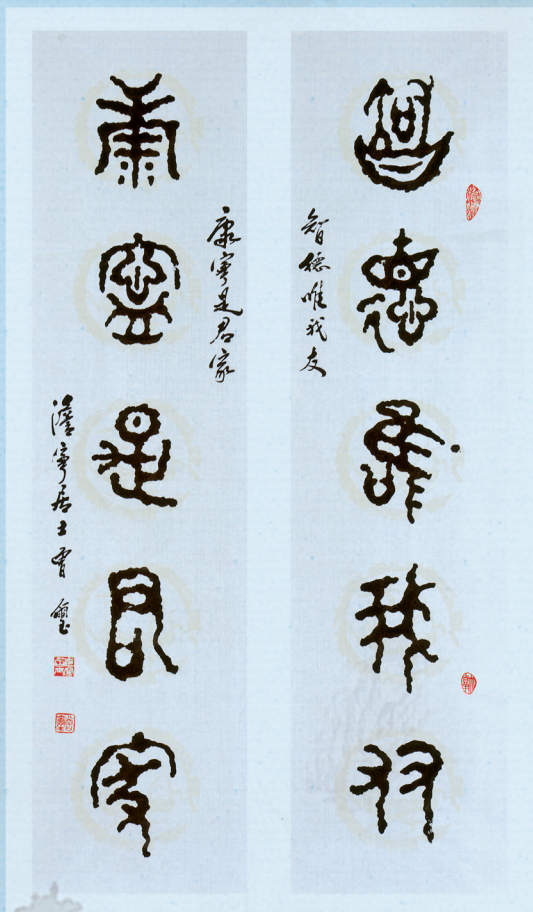 智德唯我友
智德唯我友
康寧是君家
康寧是君家
澹寧居士